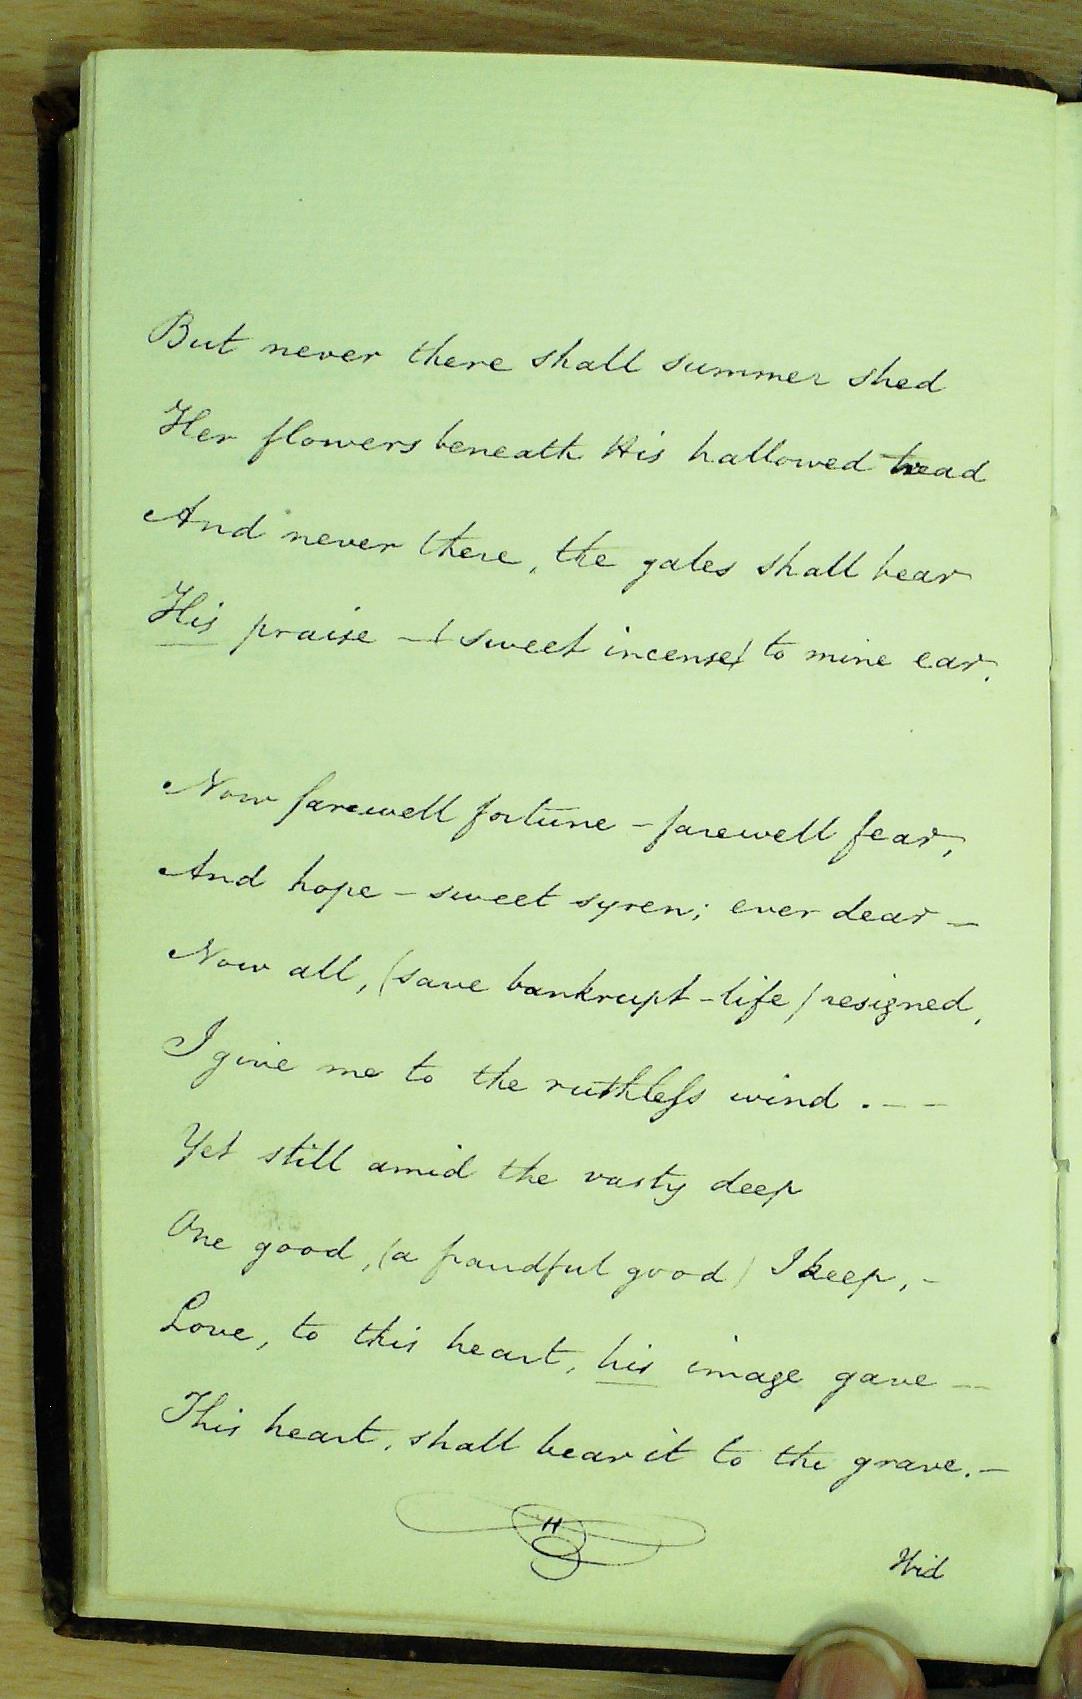 But never there shall summer shed
Her flowers beneath His hallowed tread
And never there, the gales shall bear
His praise – (sweet incense) to mine ear.
Now farewell fortune – farewell fear,
And hope – sweet syren; ever dear –
Now all, (save bankrupt – life) resigned,
I give me to the ruthless wind. – –
Yet still amid the vasty deep
One good, (a fraudful good) I keep, –
Love, to this heart, his image gave –
This heart, shall bear it to the grave. –
H